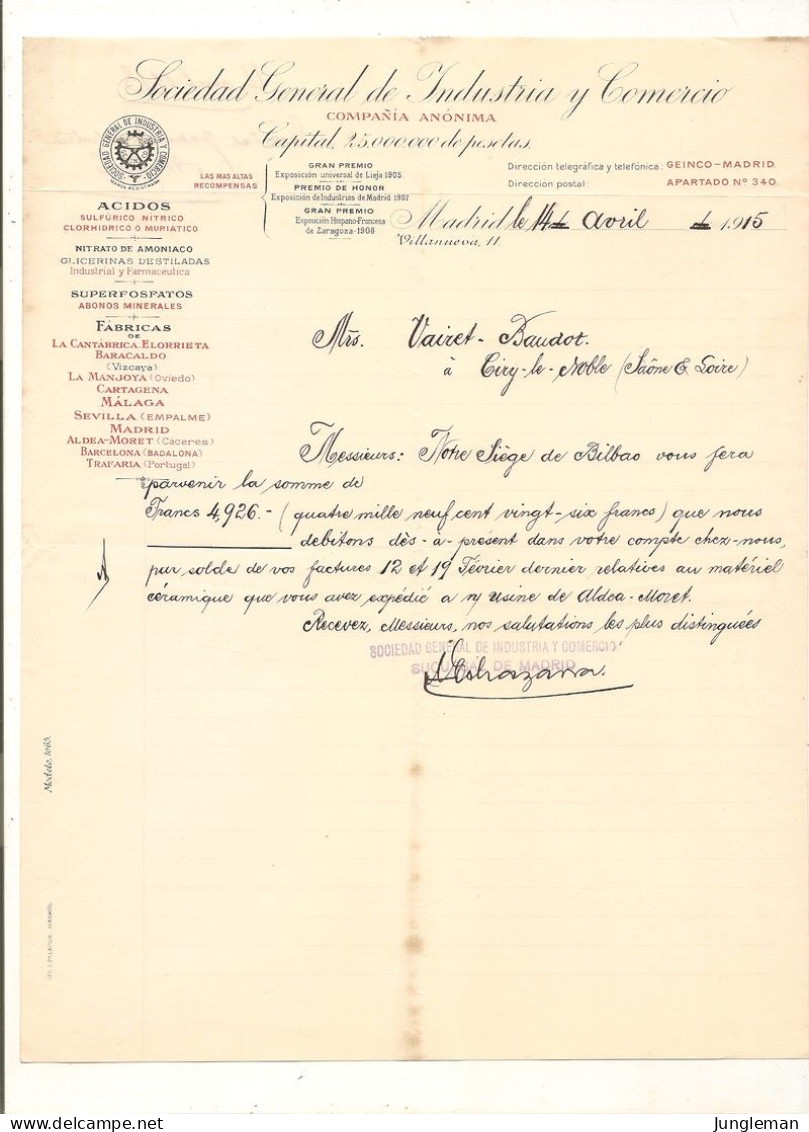 Sociedad General de Industria y Comercio
COMPAÑÍA ANÓNIMA
Capital, 25.000.000 de pesetas.
SOCIEDAD GENERAL DE INDUSTRIA Y COMERCIO
MARCA REGISTRADA
LAS MAS ALTAS
RECOMPENSAS
GRAN PREMIO
Exposición universal de Lieja 1905
PREMIO DE HONOR
Exposición de Industrias de Madrid 1907
GRAN PREMIO
Exposición Hispano-Francesa
de Zaragoza-1908
Dirección telegráfica y telefónica: GEINCO-MADRID.
Dirección postal: APARTADO Nº 340.
Madrid le 14 avril 1915
Villanueva, 11.
ACIDOS
SULFÚRICO NÍTRICO
CLORHIDRICO Ó MURIATICO
NITRATO DE AMONIACO
GLICERINAS DESTILADAS
Industrial y Farmaceutica
SUPERFOSFATOS
ABONOS MINERALES
FÁBRICAS
DE
LA CANTÁBRICA, ELORRIETA
BARACALDO
(Vizcaya)
LA MANJOYA (Oviedo)
CARTAGENA
MÁLAGA
SEVILLA (EMPALME)
MADRID
ALDEA-MORET (Cáceres)
BARCELONA (BADALONA)
TRAFARIA (Portugal)
Mrs. Vairet-Baudot.
à Ciry-le-Noble (Saône & Loire)
Messieurs: Notre Siège de Bilbao vous fera
parvenir la somme de
Francs 4,926.- (quatre mille neuf cent vingt-six francs) que nous
debitons dès-à-présent dans votre compte chez-nous,
par solde de vos factures 12 et 19 Février dernier relatives au matériel
céramique que vous avez expédié a n/ usine de Aldea-Moret.
Recevez, Messieurs, nos salutations les plus distinguées
SOCIEDAD GENERAL DE INDUSTRIA Y COMERCIO
SUCURSAL DE MADRID
Modelo, 1085.
delcampe.net
jungleman